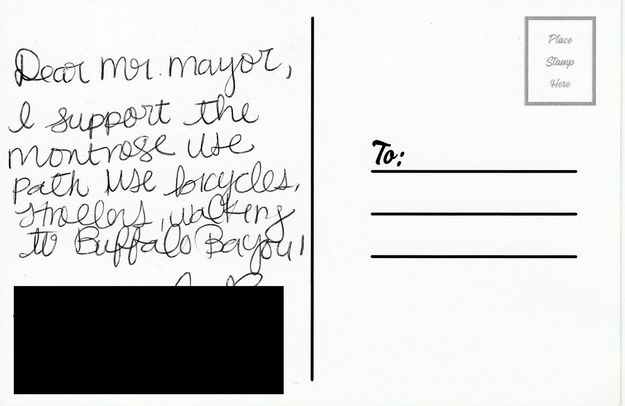 Dear Mr. Mayor,
I support the
Montrose use
path use bicycles,
strollers, walking
to Buffalo Bayou!
Place
Stamp
Here
To: